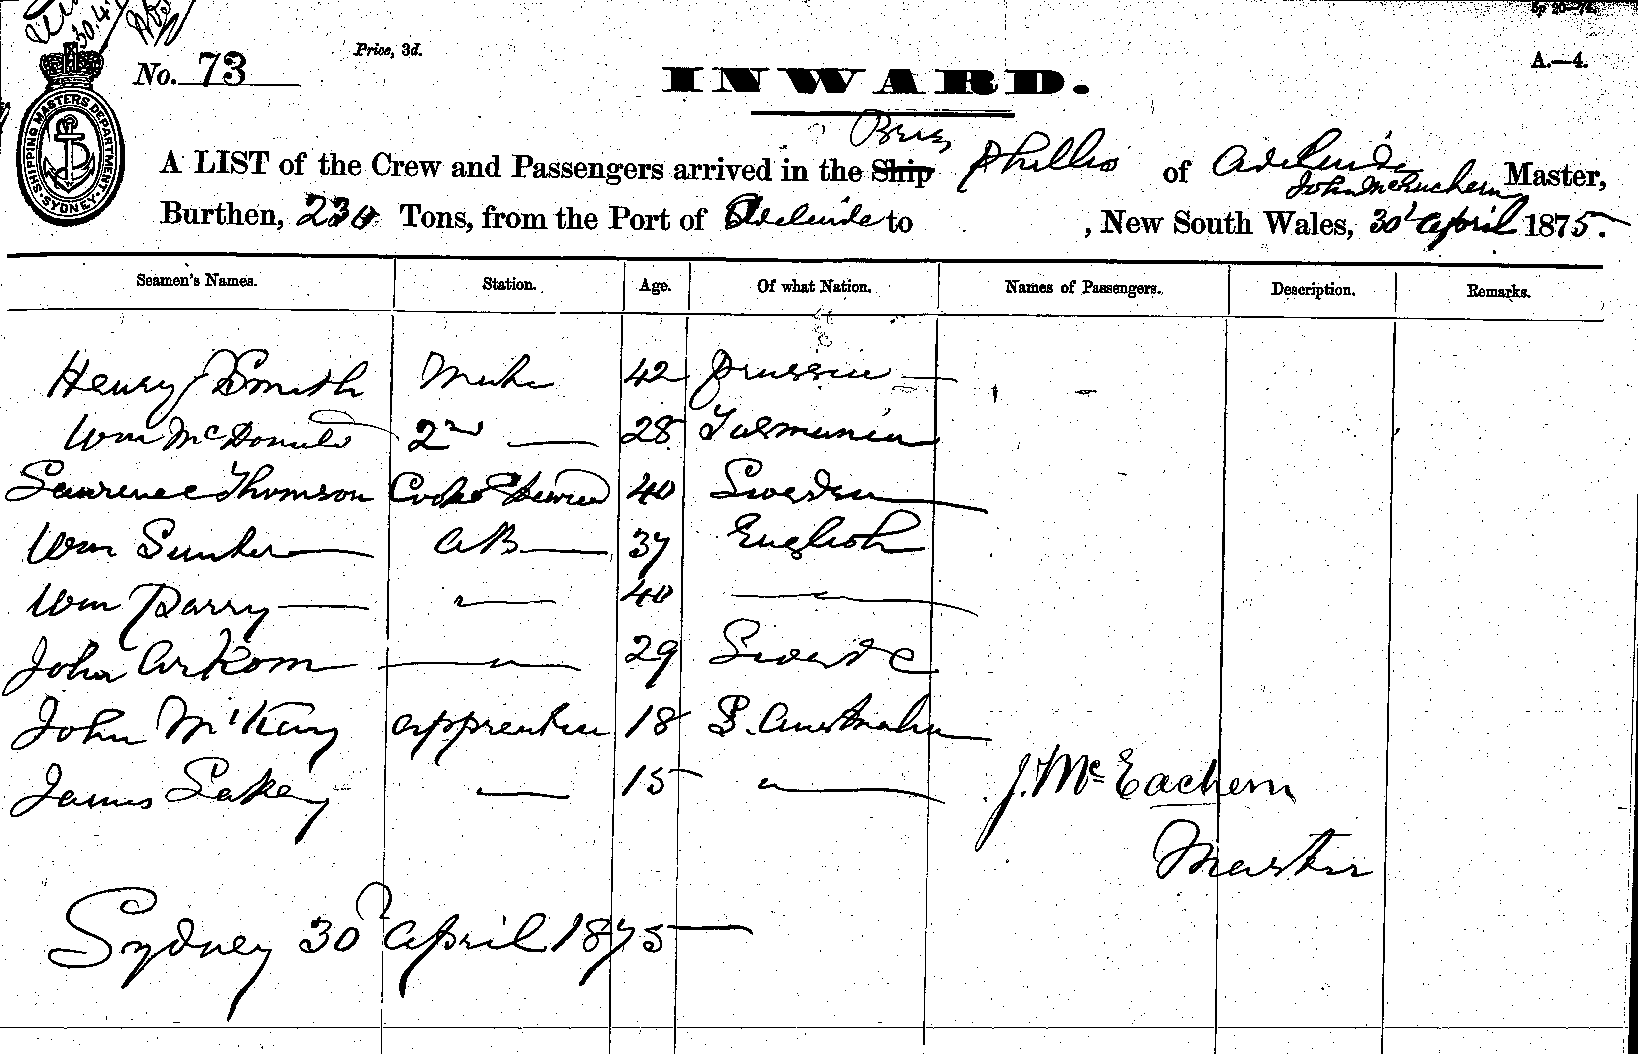 30.4.
No. 73
Price, 3d.
A.—4.
SHIPPING MASTERS DEPARTMENT SYDNEY
INWARD.
Brig
A LIST of the Crew and Passengers arrived in the Ship Phillis of Adelaide John McEachern Master,
Burthen, 230 Tons, from the Port of Adelaide to , New South Wales, 30t April 1875.
Seamen's Names. Station. Age. Of what Nation. Names of Passengers. Description. Remarks.
Henry Smith Mate 42 Prussia
Wm McDonald 2nd — 28 Tasmania
Lawrence Thomson Cook & Steward 40 Sweden
Wm AB 37 English
Wm Barry — " — 40 — " —
John Arkom — " — 29 Swede
John McKay apprentice 18 S. Australia
James Lakey — " — 15 — " —
J. McEachern
Master
Sydney 30th April 1875